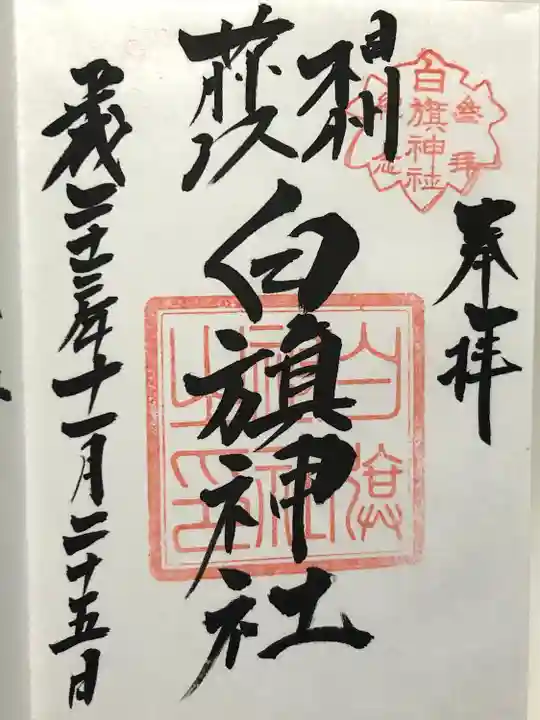 奉拝
白旗神社
参拝
紀念
相州
藤沢
白旗神社
白旗
神社
之印
平成二十三年十一月二十五日